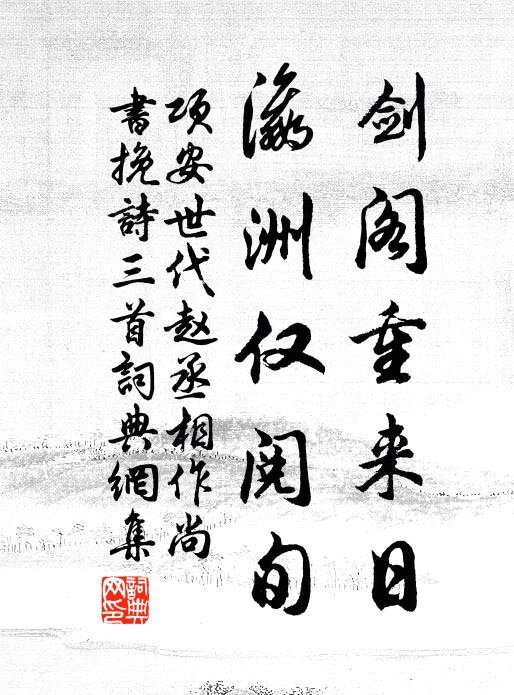 剑阁重来日
瀛洲仅阅旬
项安世代赵丞相作尚
书挽詩三首詞典網集
詞典
网印